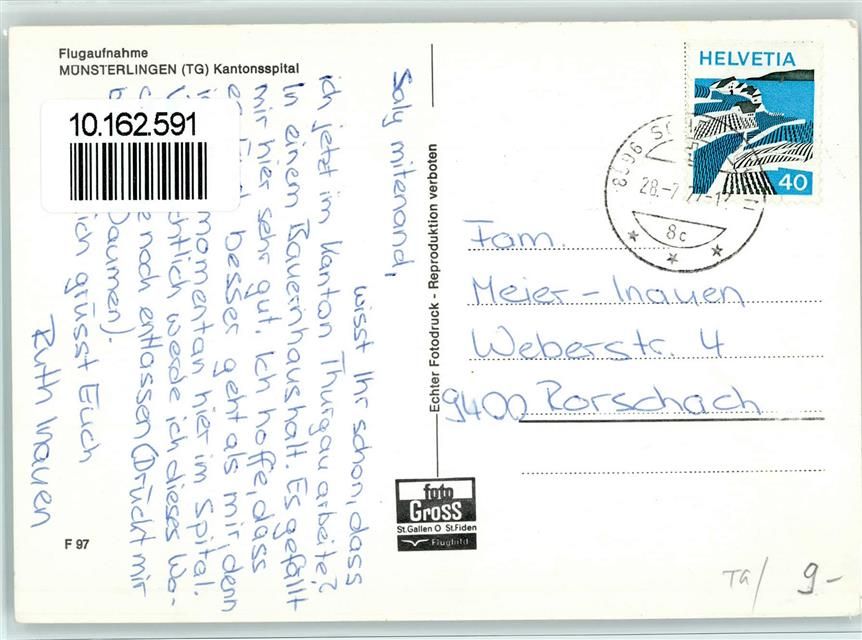 Flugaufnahme
MÜNSTERLINGEN (TG) Kantonsspital
10.162.591
Saly mitenand,
wisst Ihr schon, dass
ich jetzt im Kanton Thurgau arbeite?
In einem Bauernhaushalt. Es gefällt
mir hier sehr gut. Ich hoffe, dass
es besser geht als mir, denn
momentan hier im Spital.
werde ich dieses Wo-
noch entlassen (Drückt mir
Daumen).
grüsst Euch
Ruth Inauen
F 97
Echter Fotodruck - Reproduktion verboten
foto
Gross
St.Gallen O St.Fiden
Flugbild
HELVETIA
40
28.-7.77-17
8c
Fam.
Meier-Inauen
Weberstr. 4
9400 Rorschach
TG/ 9-